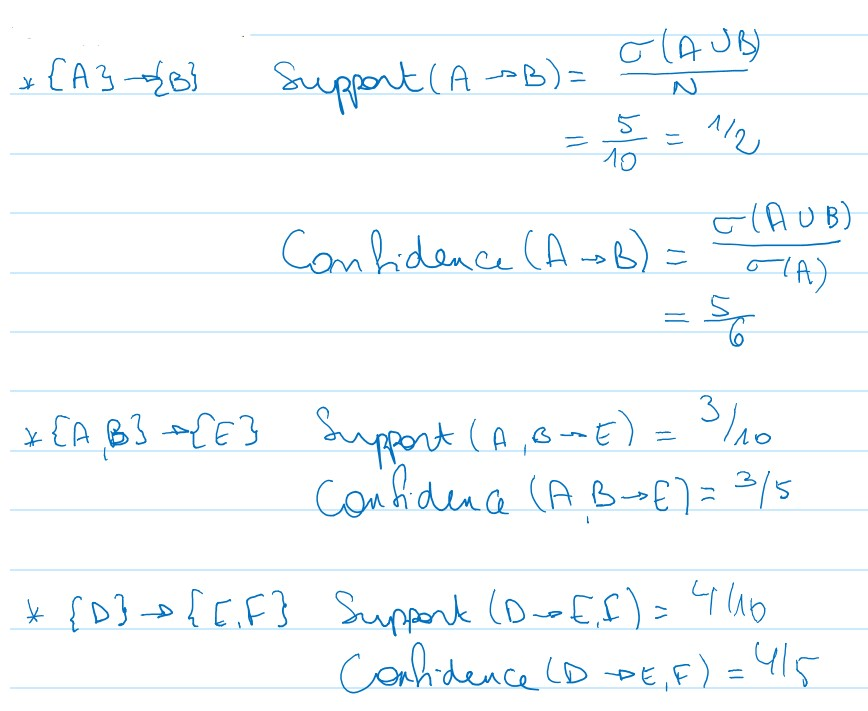 * {A} → {B} Support (A → B) = σ(A ∪ B) / N
= 5/10 = 1/2
Confidence (A → B) = σ(A ∪ B) / σ(A)
= 5/6
* {A, B} → {E} Support (A, B → E) = 3/10
Confidence (A, B → E) = 3/5
* {D} → {E, F} Support (D → E, F) = 4/10
Confidence (D → E, F) = 4/5